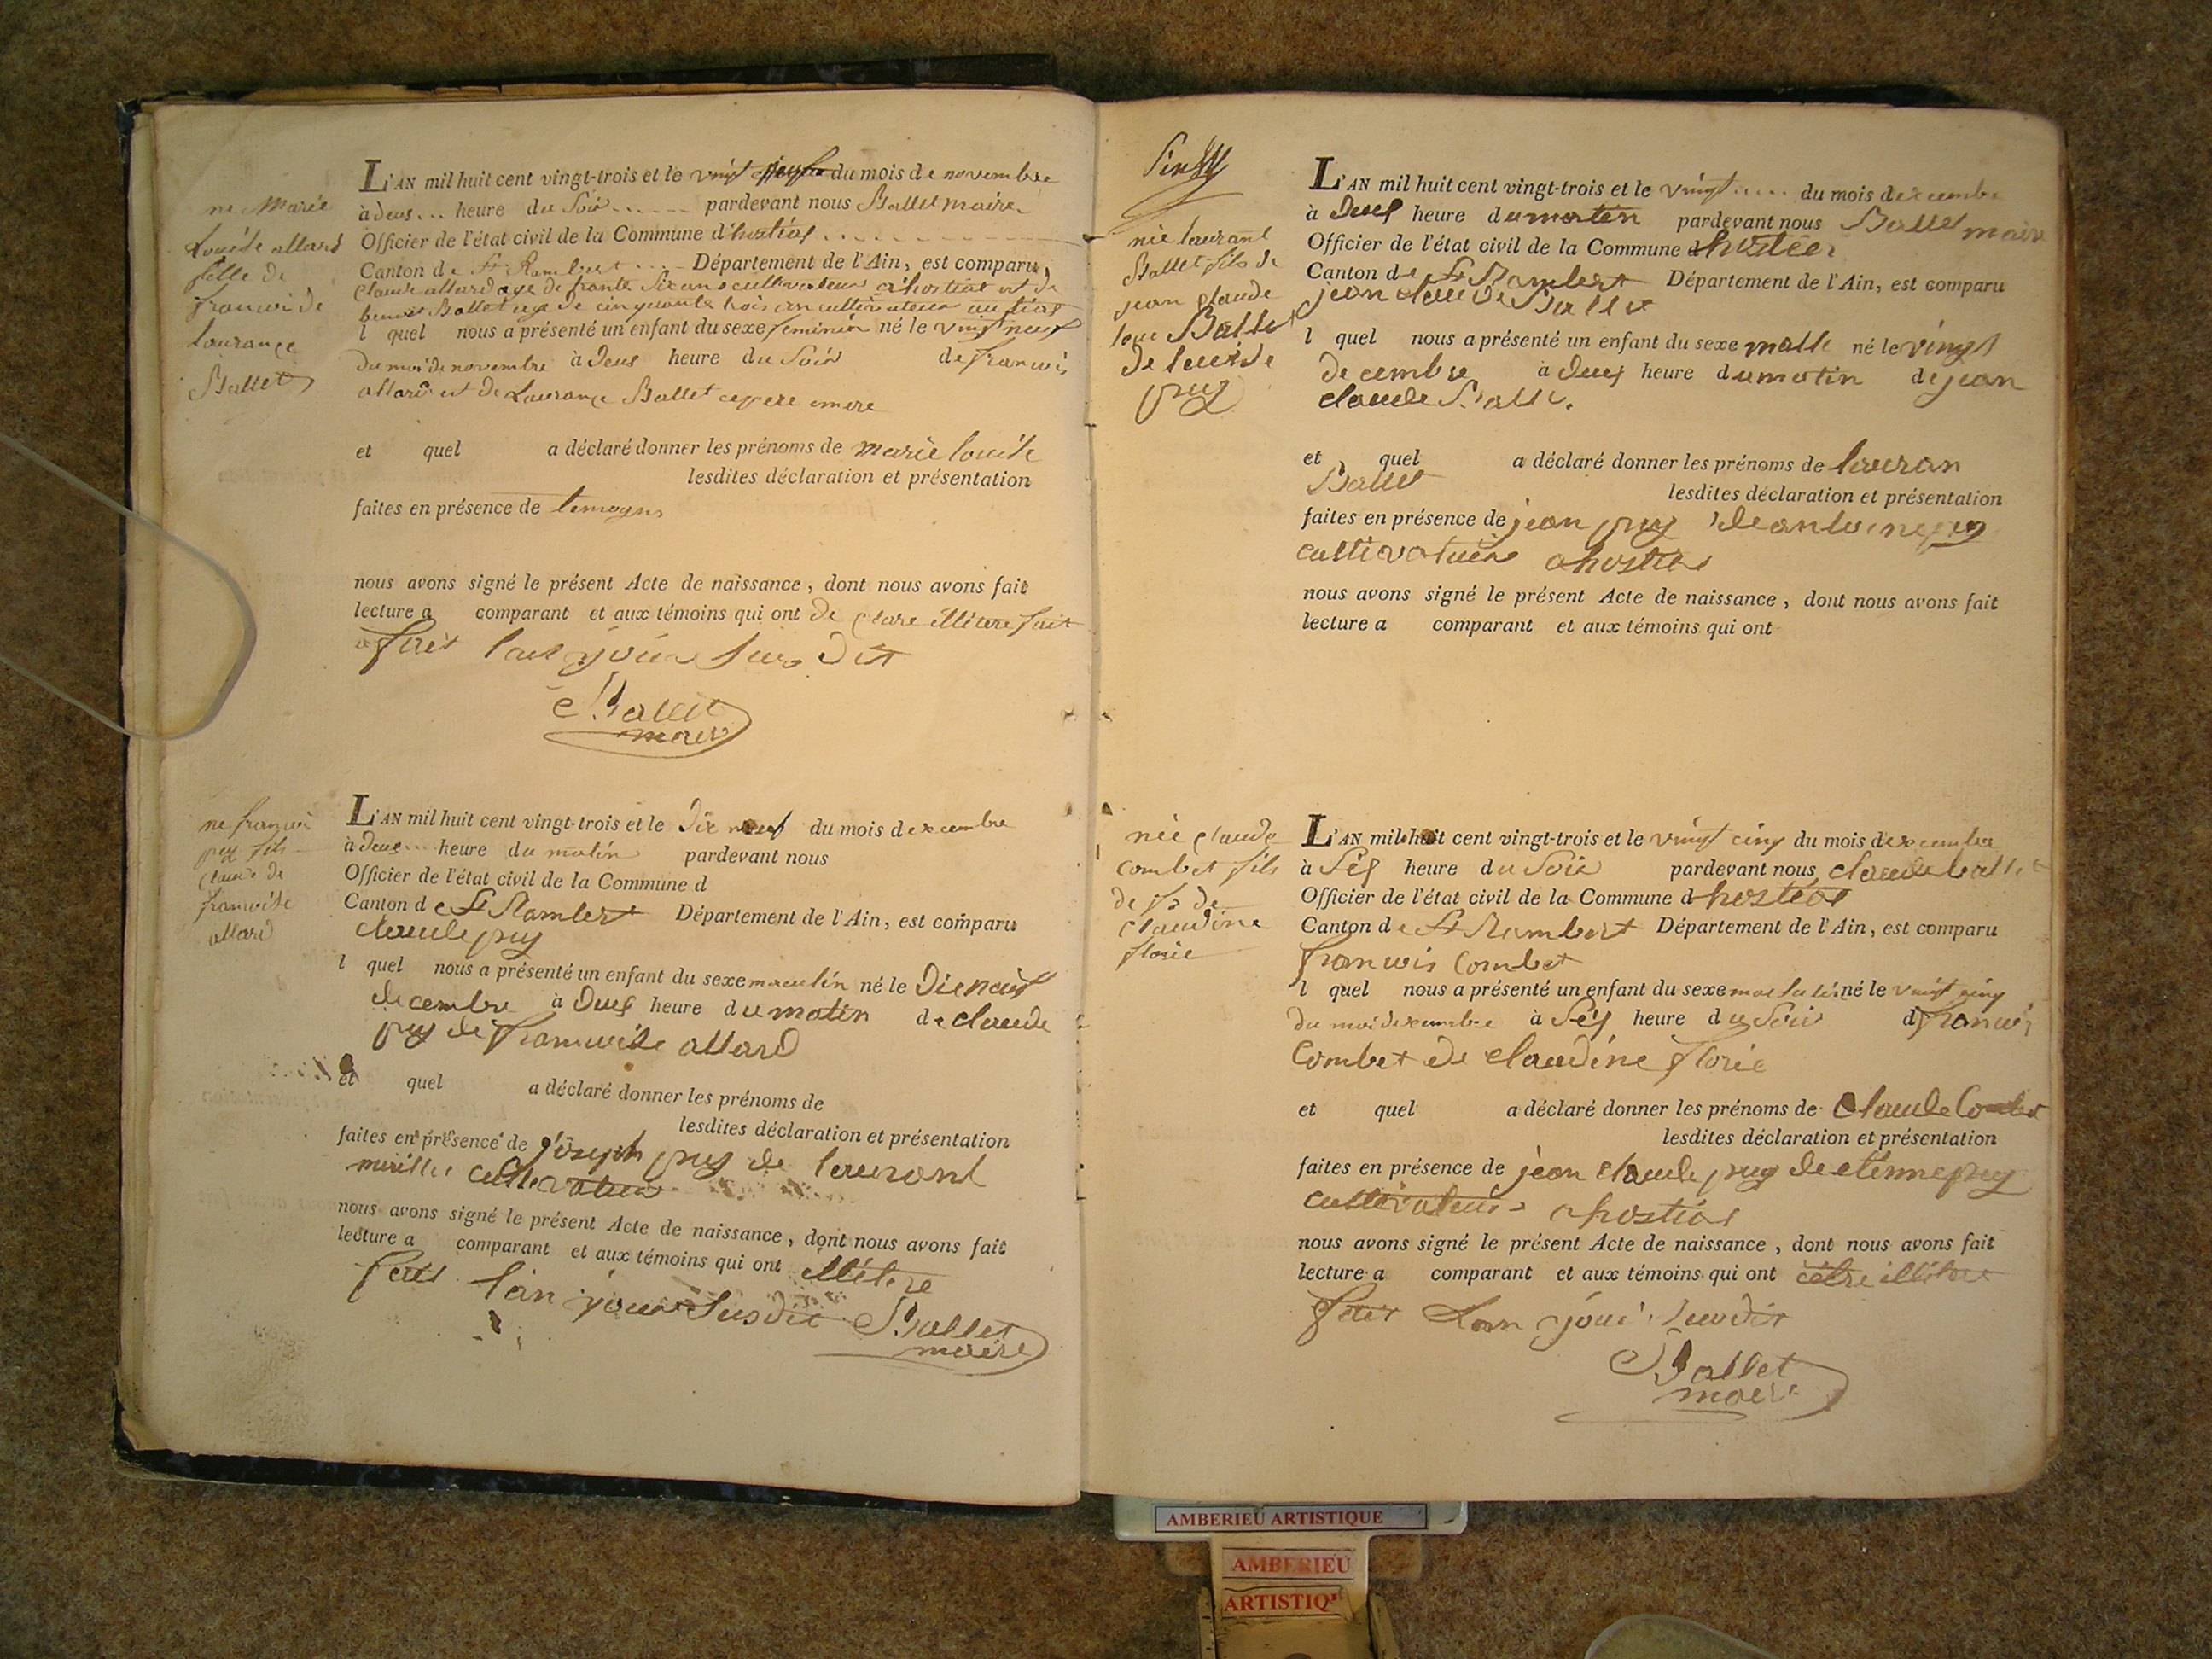 ne Marie
Louise allard
fille de
francoi de
laurance
Ballet
L'AN mil huit cent vingt-trois et le vingt du mois de novembre
à deus heure du Soir pardevant nous Ballet maire
Officier de l'état civil de la Commune d'hostias
Canton de St Rambert Département de l'Ain, est comparu
claude allard age de trante Six ans cultivateur a hostias et de
Ballet age de cinquante trois an cultivateur
l quel nous a présenté un enfant du sexe feminin né le vingt neuf
du moi de novembre à deus heure du Soir de francois
allard et de Laurance Ballet
et quel a déclaré donner les prénoms de marie louise
lesdites déclaration et présentation
faites en présence de temoyns
nous avons signé le présent Acte de naissance, dont nous avons fait
lecture a comparant et aux témoins qui ont de clare illitere fait
fait jour Sus dit
Ballet
maire
ne francois
puy fils
claude de
francoise
allard
L'AN mil huit cent vingt-trois et le Dix neuf du mois de xcembre
à deus heure du matin pardevant nous
Officier de l'état civil de la Commune d
Canton de St Rambert Département de l'Ain, est comparu
claude puy
l quel nous a présenté un enfant du sexe masculin né le Dix neuf
decembre à Deus heure du matin de claude
puy de francoise allard
et quel a déclaré donner les prénoms de
lesdites déclaration et présentation
faites en présence de joseph puy de laurant
cultivateur
nous avons signé le présent Acte de naissance, dont nous avons fait
lecture a comparant et aux témoins qui ont illitere
fait l'an jour Susdit Ballet
maire
née laurant
Ballet fils de
jean claude
Ballet
de
puy
L'AN mil huit cent vingt-trois et le vingt du mois de xcembre
à Deus heure du matin pardevant nous Ballet maire
Officier de l'état civil de la Commune d hostias
Canton de St Rambert Département de l'Ain, est comparu
jean claude Ballet
l quel nous a présenté un enfant du sexe malle né le vingt
decembre à deus heure du matin de jean
claude Ballet
et quel a déclaré donner les prénoms de lauran
Ballet
lesdites déclaration et présentation
faites en présence de jean puy de antoine puy
cultivateur a hostias
nous avons signé le présent Acte de naissance, dont nous avons fait
lecture a comparant et aux témoins qui ont
née claude
combet fils
de fs de
claudine
florie
L'AN mil huit cent vingt-trois et le vingt cinq du mois de xcembre
à Sis heure du Soir pardevant nous claude ballet
Officier de l'état civil de la Commune d hostias
Canton de St Rambert Département de l'Ain, est comparu
francois Combet
l quel nous a présenté un enfant du sexe masculin né le vingt cinq
du moi de xcembre à Sis heure du Soir d francois
Combet de claudine florie
et quel a déclaré donner les prénoms de Claude Combet
lesdites déclaration et présentation
faites en présence de jean claude puy de etienne puy
cultivateur a hostias
nous avons signé le présent Acte de naissance, dont nous avons fait
lecture a comparant et aux témoins qui ont être illitere
fait Lan jour susdit
Ballet
maire
AMBERIEU ARTISTIQUE
AMBERIEU
ARTISTIQ